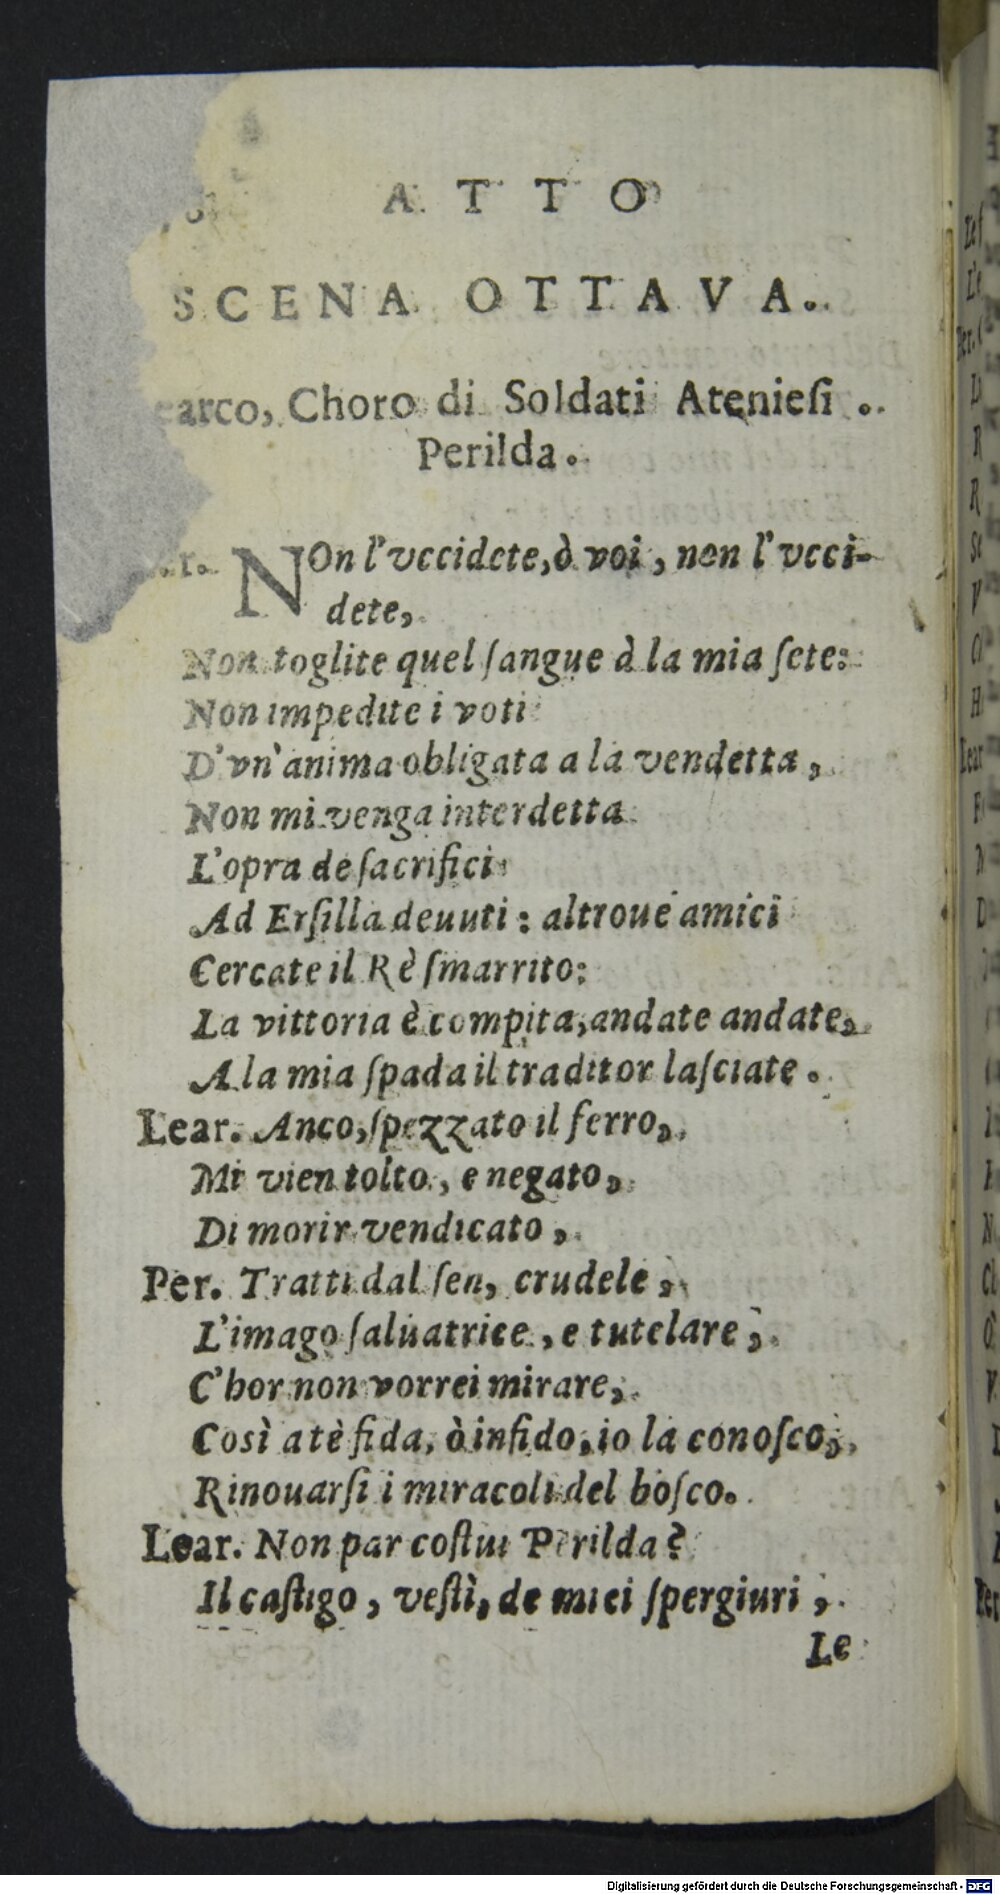 ATTO
SCENA OTTAVA.
earco, Choro di Soldati Ateniesi.
Perilda.
r. NOn l'vccidete, ò voi, non l'vcci-
dete,
Non toglite quel ſangue à la mia ſete:
Non impedite i voti
D'vn'anima obligata a la vendetta,
Non mi venga interdetta
L'opra de ſacrifici
Ad Erſilla deuuti: altroue amici
Cercate il Rè ſmarrito:
La vittoria è compita, andate andate,
A la mia ſpada il traditor laſciate.
Lear. Anco, ſpezzato il ferro,
Mi vien tolto, e negato,
Di morir vendicato,
Per. Tratti dal ſen, crudele,
L'imago ſaluatrice, e tutelare,
C'hor non vorrei mirare,
Così a tè fida, ò infido, io la conoſco,
Rinouarſi i miracoli del boſco.
Lear. Non par coſtui Perilda?
Il caſtigo, veſtì, de miei ſpergiuri,
Le
Digitalisierung gefördert durch die Deutsche Forschungsgemeinschaft - DFG